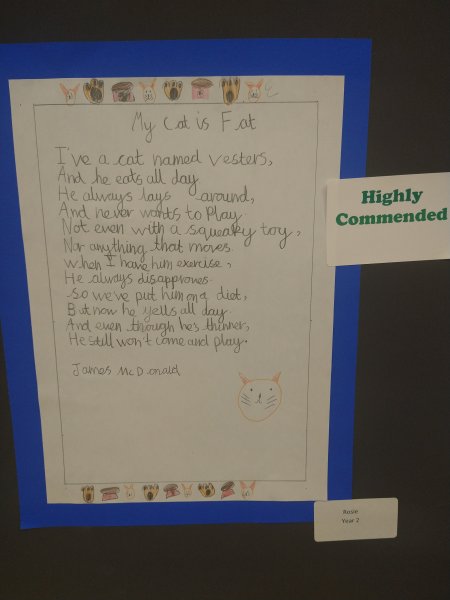 My Cat is Fat
I've a cat named vesters,
And he eats all day
He always lays around,
And never wants to Play
Not even with a squeaky toy,
Nor anything that moves.
when I have him exercise,
He always disapproves.
so we've put him on a diet,
But now he yells all day.
And even though he's thinner,
He still won't come and play.
James McDonald
Highly
Commended
Rosie
Year 2